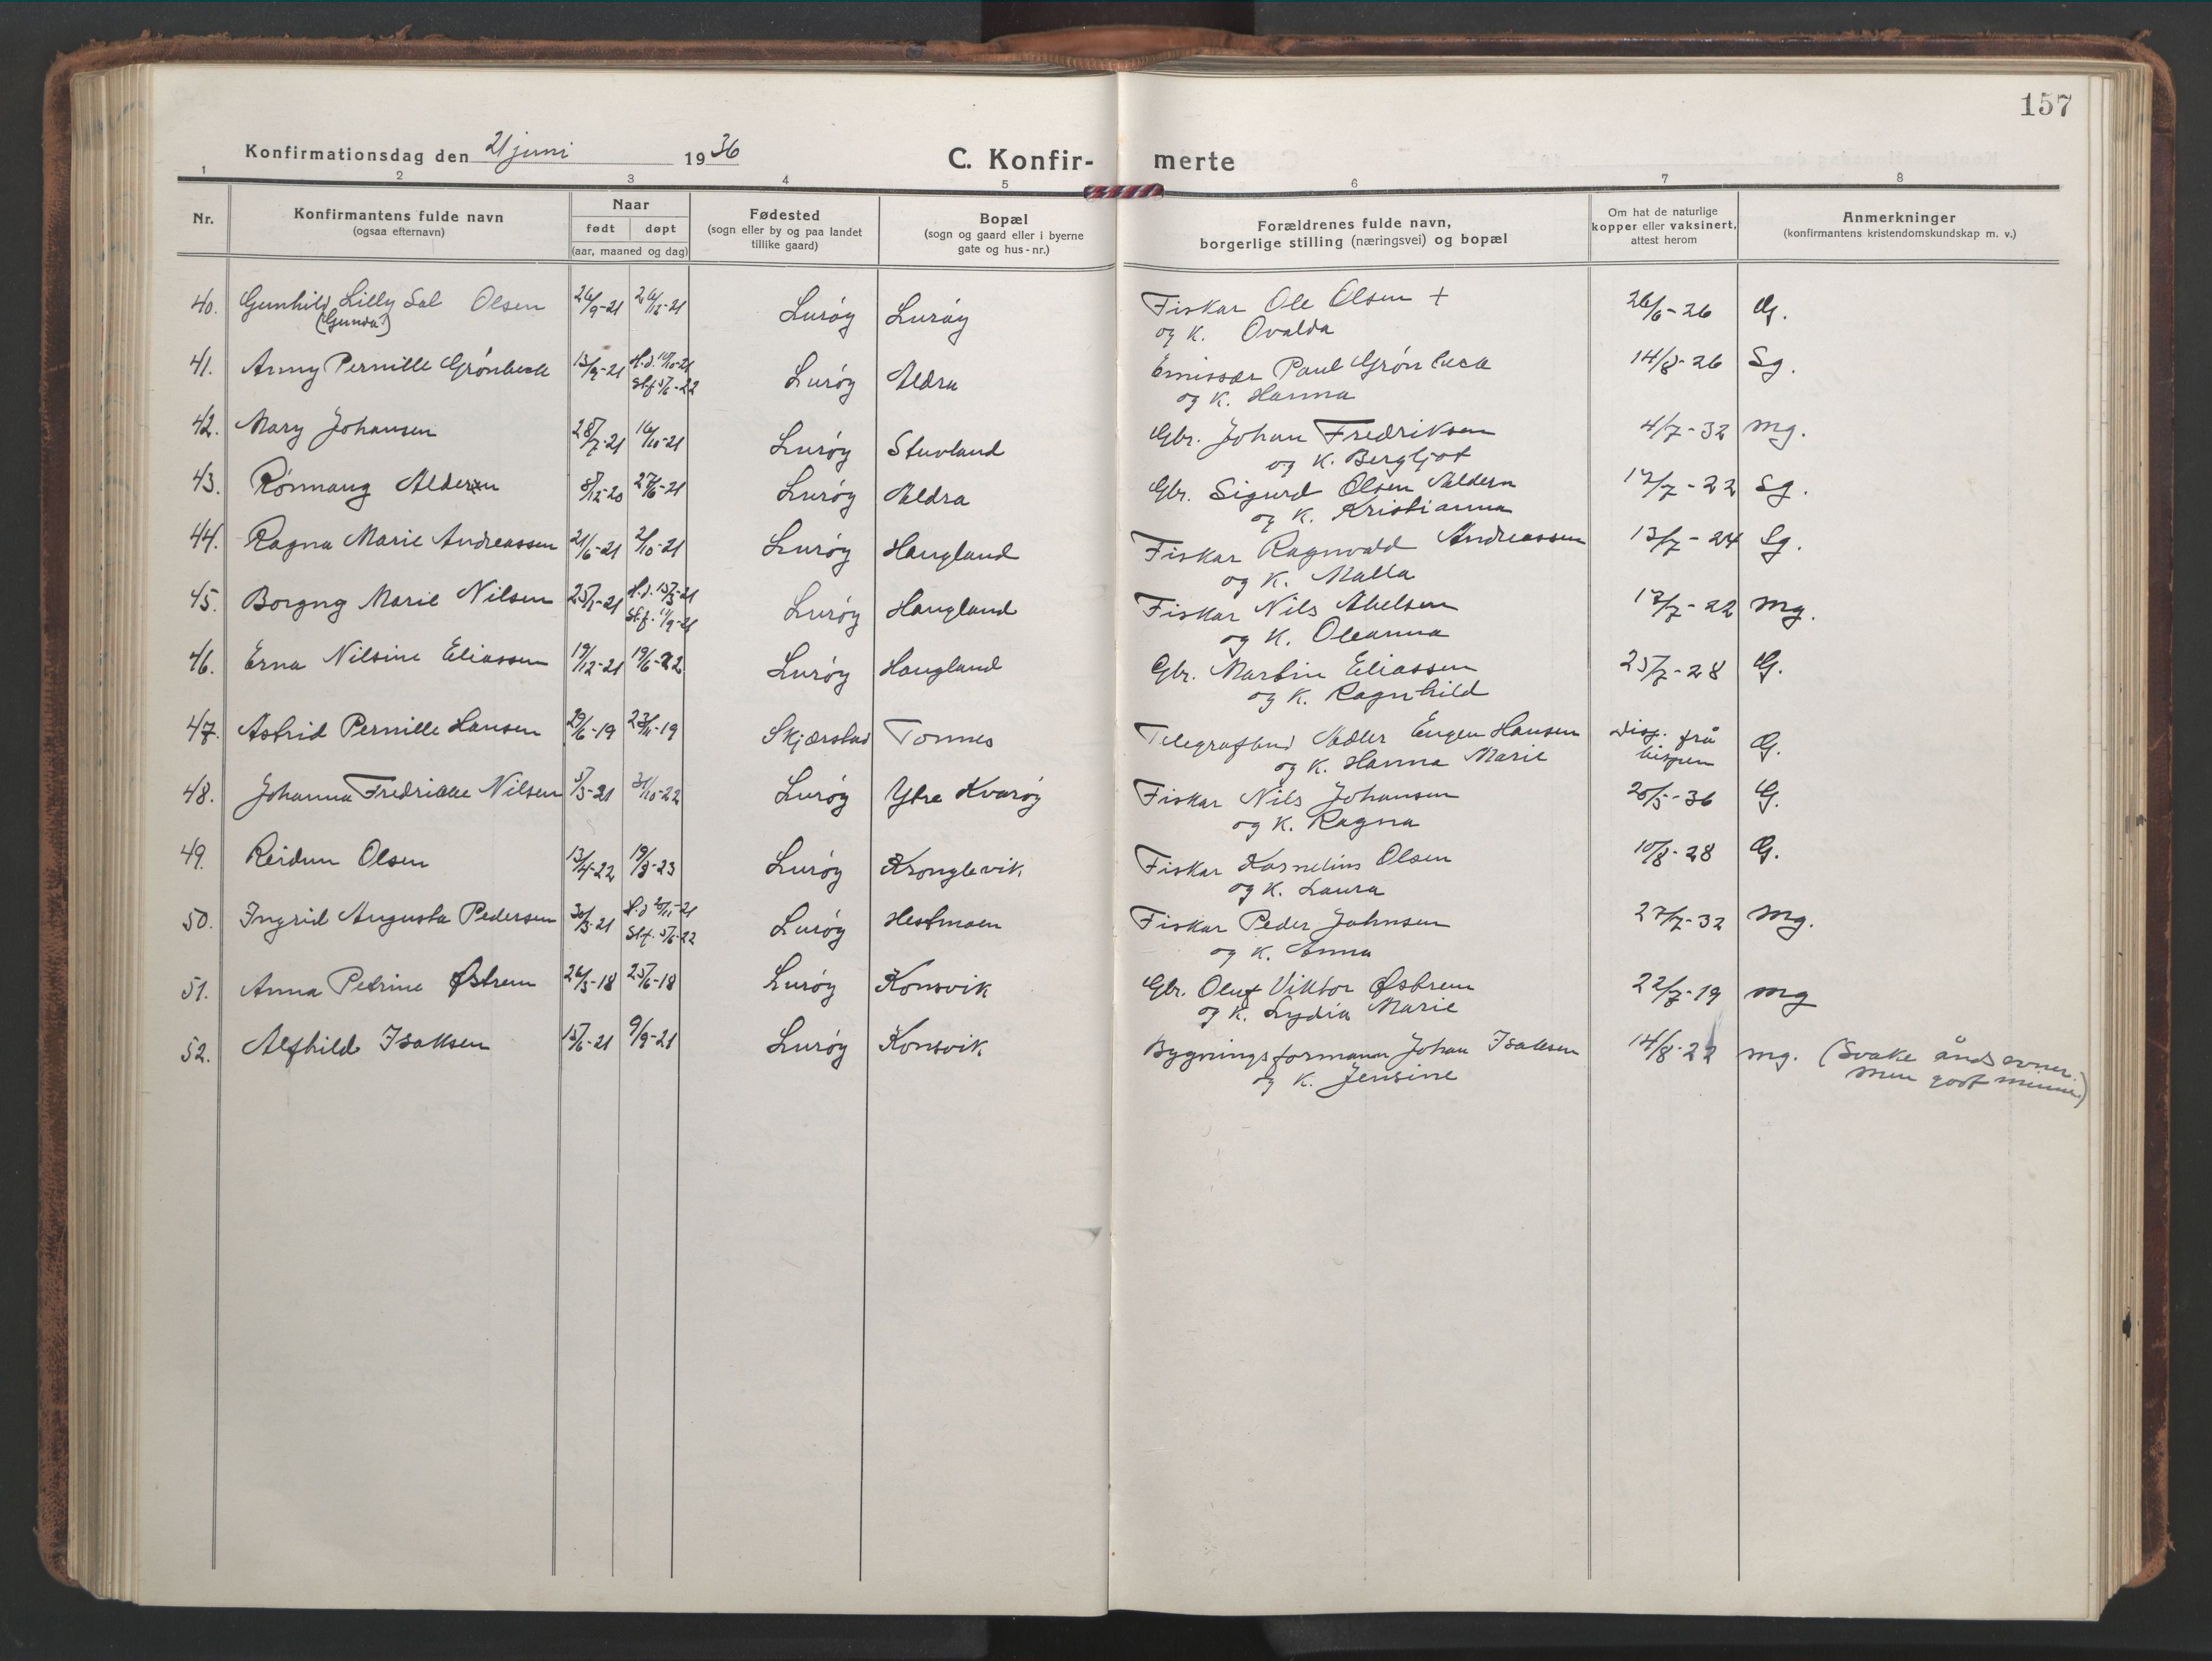 157
Konfirmationsdag den 21 juni 1936
C. Konfir- merte
1 2 3 4 5 6 7 8
Nr.
Konfirmantens fulde navn
(ogsaa efternavn)
Naar
født døpt
(aar, maaned og dag)
Fødested
(sogn eller by og paa landet
tillike gaard)
Bopæl
(sogn og gaard eller i byerne
gate og hus-nr.)
Forældrenes fulde navn,
borgerlige stilling (næringsvei) og bopæl
Om hat de naturlige
kopper eller vaksinert,
attest herom
Anmerkninger
(konfirmantens kristendomskundskap m. v.)
40. Gunhild Lilly Sol Olsen 26/9-21 26/12-21 Lurøy Lurøy Fiskar Ole Olsen + 26/6-26 G.
(Gunda?) og K. Ovalda
41. Anny Pernille Grønbeck 13/9-21 H.d. 10-21 Lurøy Aldra Emissær Paul Grønbeck 14/8-26 Sg.
Stf 5/6-22 og K. Hanna
42. Mary Johansen 28/7-21 16/10-21 Lurøy Stuvland Gbr. Johan Fredriksen 4/7-32 mg.
og K. Bergljot
43. Rønnaug Aldern 8/12-20 27/6-21 Lurøy Aldra Gbr. Sigurd Olsen Aldern 17/7-22 Sg.
og K. Kristianna
44. Ragna Marie Andreassen 21/6-21 2/10-21 Lurøy Haugland Fiskar Ragnvald Andreassen 13/7-24 Sg.
og K. Malla
45. Borgny Marie Nilsen 25/1-21 H.d. 15/3-21 Lurøy Haugland Fiskar Nils Abelsen 17/7-22 mg.
Stf. 11/9-21 og K. Oleanna
46. Erna Nilsine Eliassen 19/12-21 19/6-22 Lurøy Haugland Gbr. Martin Eliassen 25/7-28 G.
og K. Ragnhild
47. Astrid Pernille Hansen 29/6-19 23/11-19 Skjærstad Tonnes Telegrafbud Adler Eugen Hansen Disp. frå G.
og K. Hanna Marie bispen
48. Johanna Fredrikke Nilsen 5/3-21 31/10-22 Lurøy Ytre Kvarøy Fiskar Nils Johansen 20/5-36 G.
og K. Ragna
49. Reidun Olsen 13/4-22 19/8-23 Lurøy Kronglevik Fiskar Kornelius Olsen 10/8-28 G.
og K. Laura
50. Ingrid Augusta Pedersen 30/3-21 H.d 20/11-21 Lurøy Hestmoen Fiskar Peder Johnsen 27/7-32 mg.
Stf. 5/6-22 og K. Anna
51. Anna Petrine Østrem 26/3-18 25/6-18 Lurøy Konsvik Gbr. Oluf Viktor Østrem 22/7-19 mg
og K. Lydia Marie
52. Alfhild Isaksen 15/6-21 9/9-21 Lurøy Konsvik Bygningsformann Johan Isaksen 14/8-22 mg. (Svake åndsevner.
og K. Jensine men godt minne)